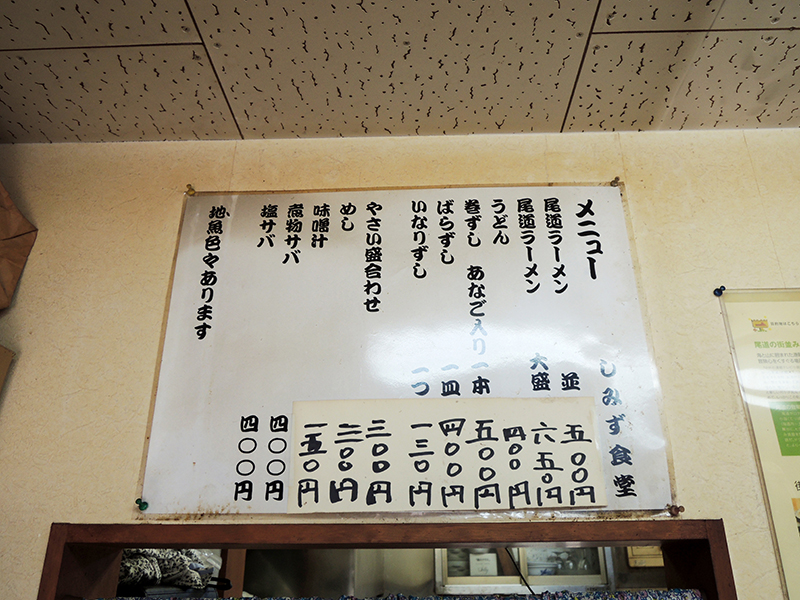 メニュー
しみず食堂
尾道ラーメン 並 五〇〇円
尾道ラーメン 大盛 六五〇円
うどん 四〇〇円
巻ずし あなご入り一本 五〇〇円
ばらずし 一皿 四〇〇円
いなりずし 一つ 一三〇円
やさい盛合わせ 三〇〇円
めし 二〇〇円
味噌汁 一五〇円
煮物サバ 四〇〇円
塩サバ 四〇〇円
地魚色々あります
尾道の街並み